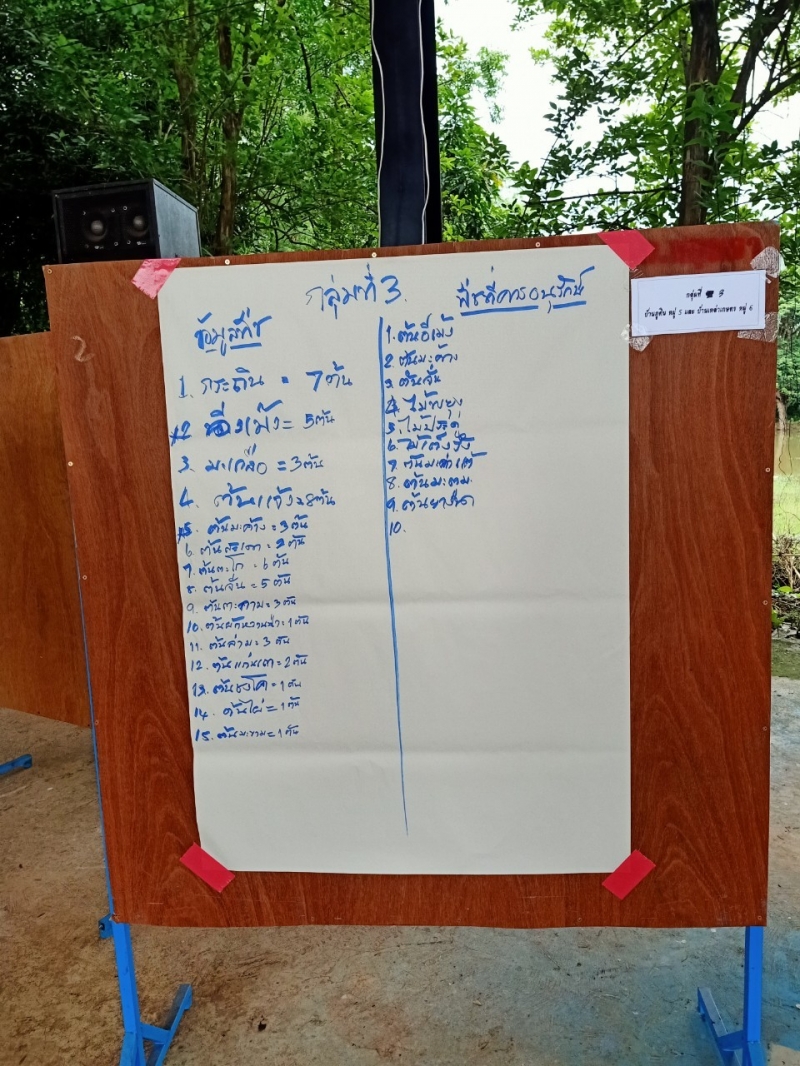 กลุ่มที่ 3.
ข้อมูลพืช
1. กระถิน = 7 ต้น
= 5 ต้น
3. มะเกลือ = 3 ต้น
4. ต้นแจ้ง = 8 ต้น
5. ต้นมะค้าง = 3 ต้น
6. ต้นสะเดา = 2 ต้น
7. ต้นตะโก = 6 ต้น
8. ต้นจั่น = 5 ต้น
9. = 3 ต้น
10. = 1 ต้น
11. = 3 ต้น
12. = 2 ต้น
13. = 1 ต้น
14. ต้นไผ่ = 1 ต้น
15. ต้นมะขาม = 1 ต้น
พืชที่ควรอนุรักษ์
1. ต้นอีเม้ง
2. ต้นมะค้าง
3. ต้นจั่น
4. ไม้พยุง
5. ไม้ประดู่
6. ไม้เต็งรัง
7. ต้นมะค่าแต้
8. ต้นมะตูม
9. ต้นยางนา
10.
กลุ่มที่ 3
บ้านภูดิน หมู่ 5 และ บ้านเหล่าเกษตร หมู่ 6
2